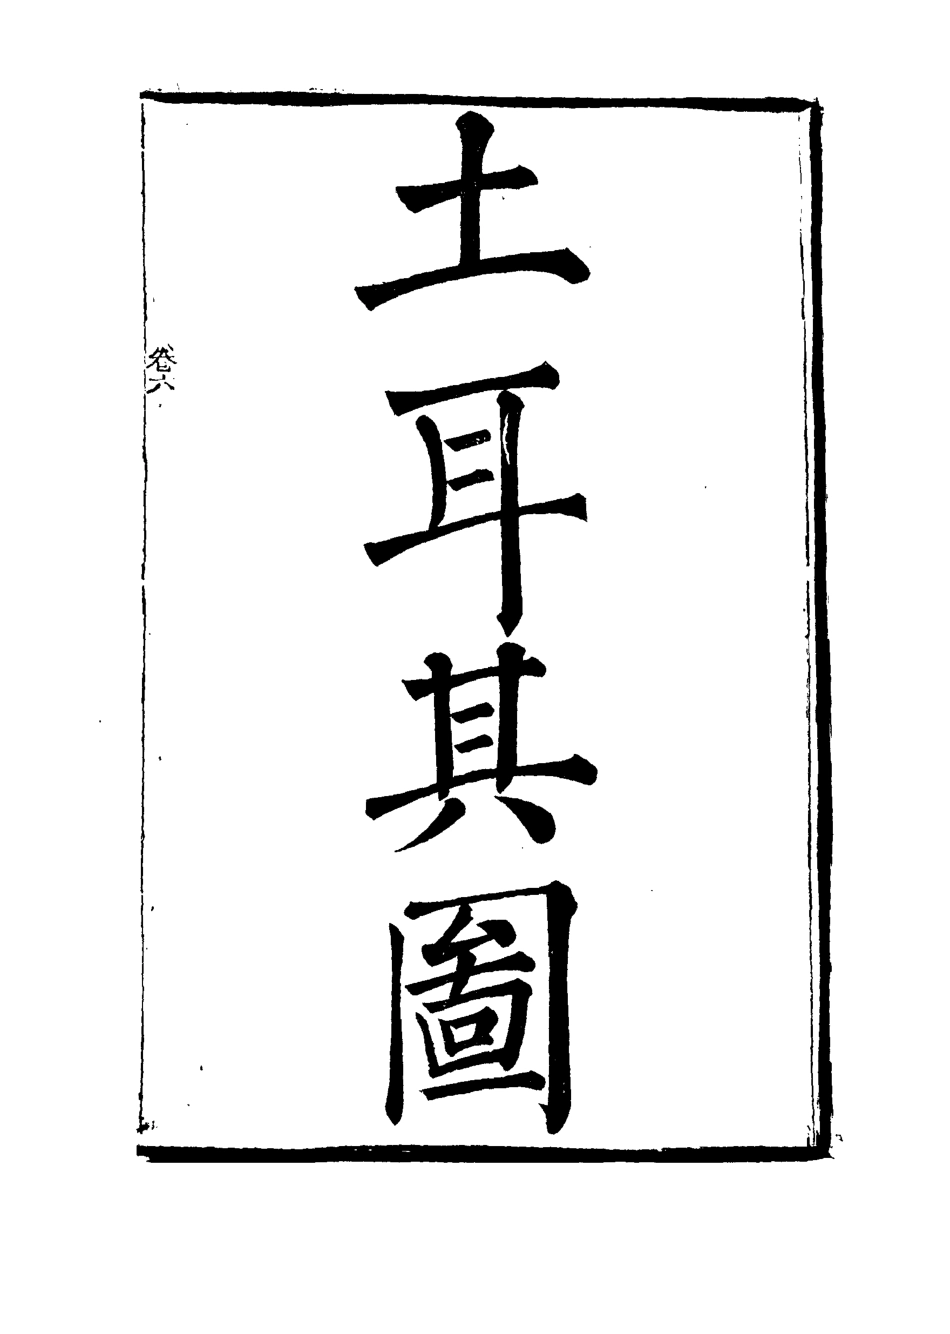 土耳其圖
卷六